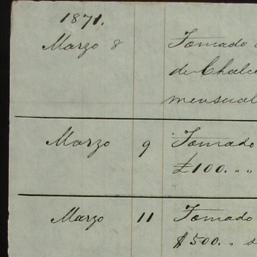 1871.
Marzo 8 Tomado
de Chalco
mensual
Marzo 9 Tomado
£100. „ „
Marzo 11 Tomado
$500. „